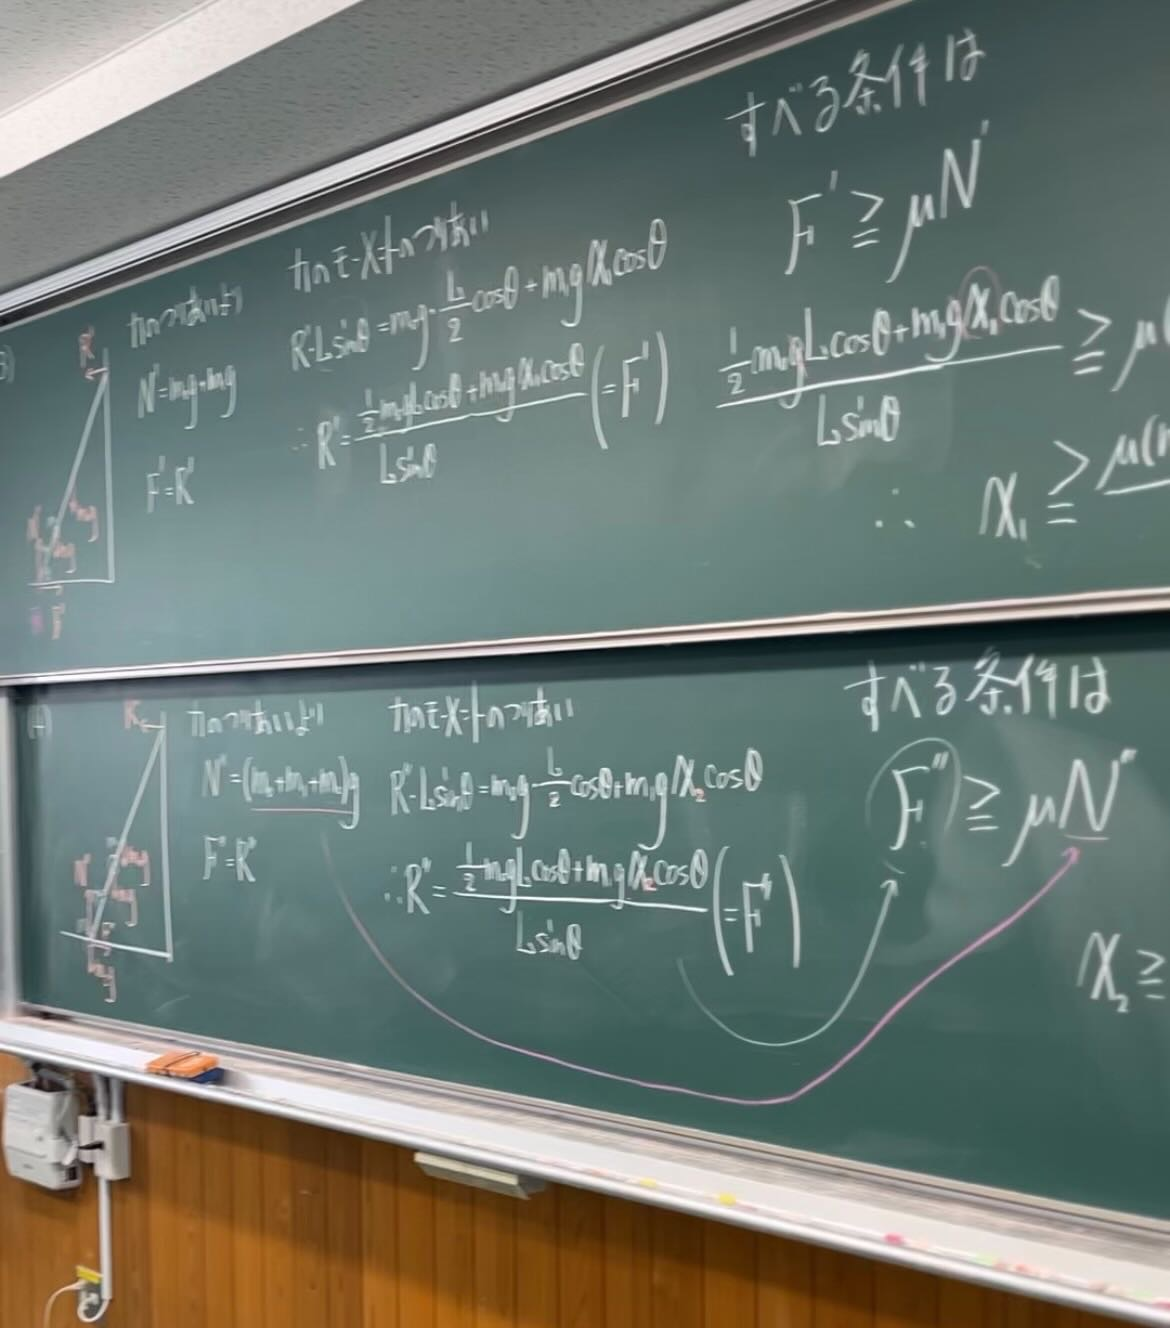 3)
力のつりあいより
N'=m₀g+m₁g
F'=R'
力のモーメントのつりあい
R'·Lsinθ=m₀g·L/2 cosθ+m₁g x₁cosθ
∴ R'=(1/2 m₀gLcosθ+m₁g x₁cosθ)/Lsinθ (=F')
すべる条件は
F' ≧ μN'
(1/2 m₀gLcosθ+m₁g x₁cosθ)/Lsinθ ≧ μ(
∴ x₁ ≧ μ(m
R'
F'
力のつりあいより
N''=(m₀+m₁+m₂)g
F''=R''
力のモーメントのつりあい
R''·Lsinθ=m₀g·L/2 cosθ+m₁g x₂cosθ
∴R''=(1/2 m₀gLcosθ+m₁g x₂cosθ)/Lsinθ (=F'')
すべる条件は
F'' ≧ μN''
x₂ ≧